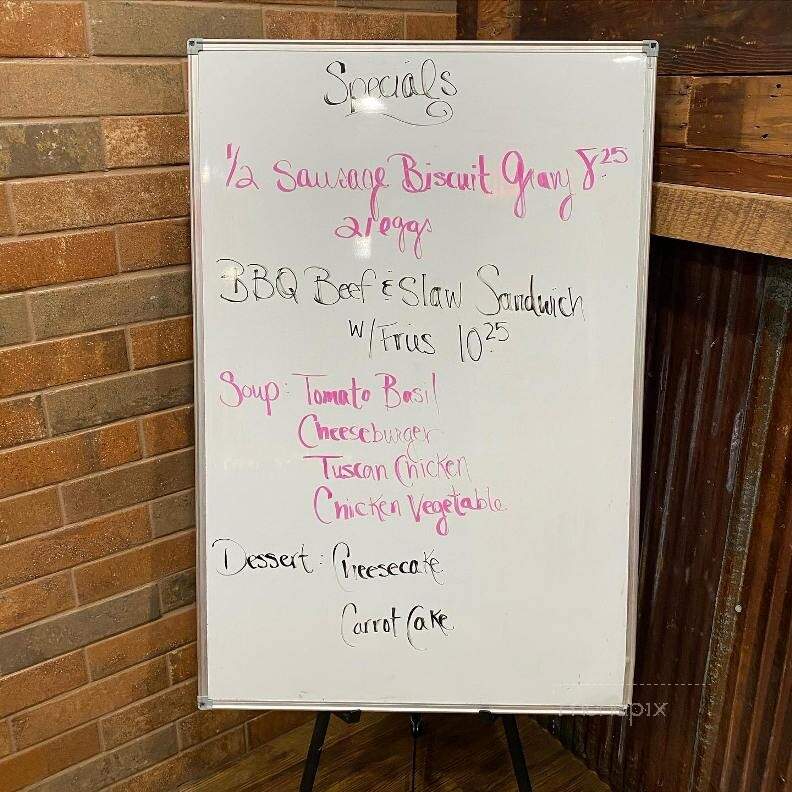 Specials
1/2 Sausage Biscuit Gravy 8.25
2 eggs
BBQ Beef & Slaw Sandwich
w/Fries 10.25
Soup: Tomato Basil
Cheeseburger
Tuscan Chicken
Chicken Vegetable
Dessert: Cheesecake
Carrot Cake
menupix